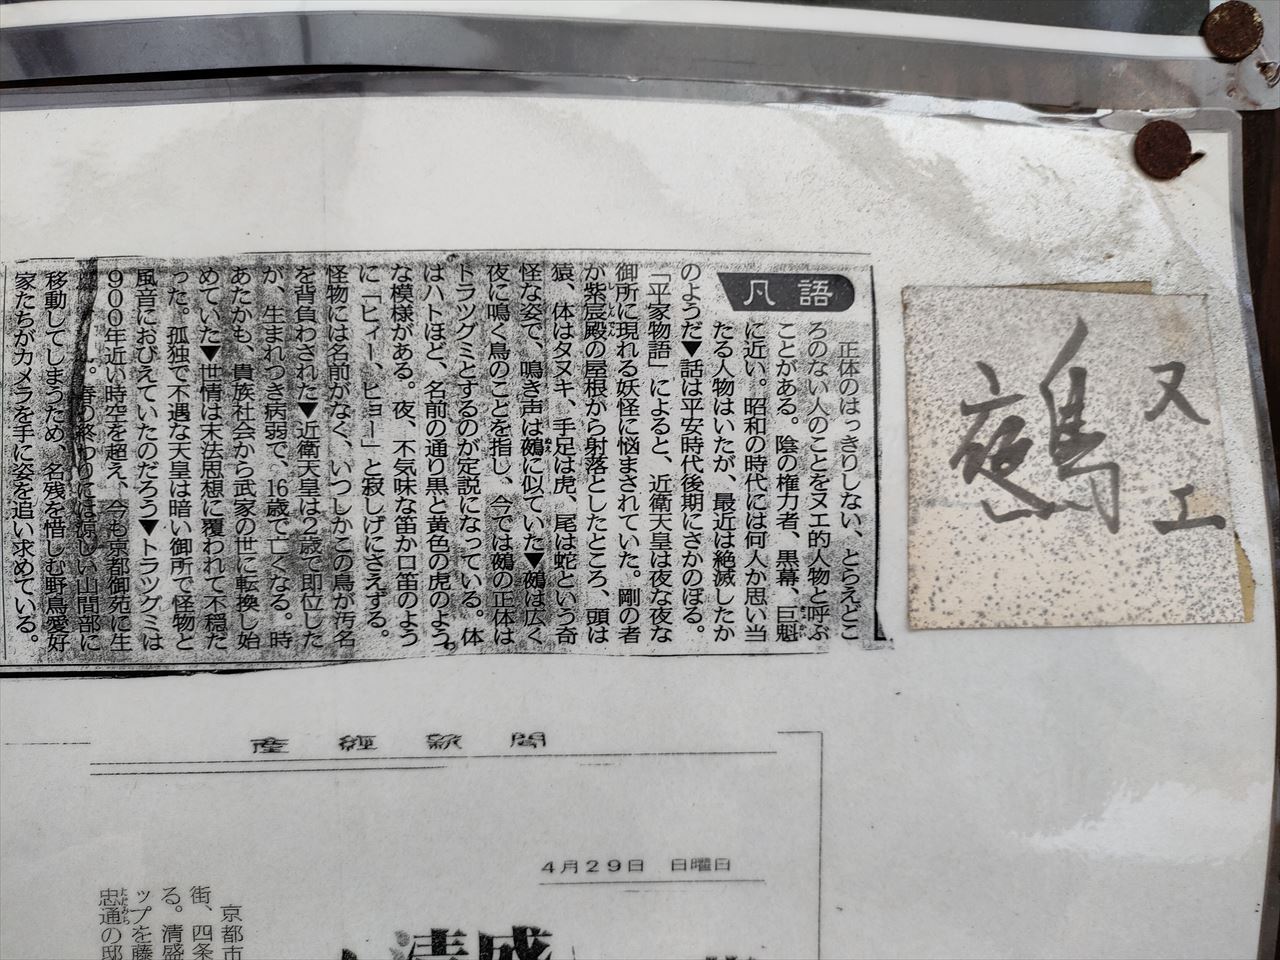 ヌエ
鵺
凡語
正体のはっきりしない、とらえどこ
ろのない人のことをヌエ的人物と呼ぶ
ことがある。陰の権力者、黒幕、巨魁
に近い。昭和の時代には何人か思い当
たる人物はいたが、最近は絶滅したか
のようだ▼話は平安時代後期にさかのぼる。
「平家物語」によると、近衛天皇は夜な夜な
御所に現れる妖怪に悩まされていた。剛の者
が紫宸殿の屋根から射落としたところ、頭は
猿、体はタヌキ、手足は虎、尾は蛇という奇
怪な姿で、鳴き声は鵺に似ていた▼鵺は広く
夜に鳴く鳥のことを指し、今では鵺の正体は
トラツグミとするのが定説になっている。体
はハトほど、名前の通り黒と黄色の虎のよう
な模様がある。夜、不気味な笛か口笛のよう
に「ヒィー、ヒョー」と寂しげにさえずる。
怪物には名前がなく、いつしかこの鳥が汚名
を背負わされた▼近衛天皇は2歳で即位した
が、生まれつき病弱で、16歳で亡くなる。時
あたかも、貴族社会から武家の世に転換し始
めていた▼世情は末法思想に覆われて不穏だ
った。孤独で不遇な天皇は暗い御所で怪物と
風音におびえていたのだろう▼トラツグミは
900年近い時空を超え、今も京都御苑に生
。春の終わりには涼しい山間部に
移動してしまうため、名残を惜しむ野鳥愛好
家たちがカメラを手に姿を追い求めている。
産經新聞
4月29日 日曜日
清盛
京都市
街、四条
る。清盛
ップを藤
忠通の邸